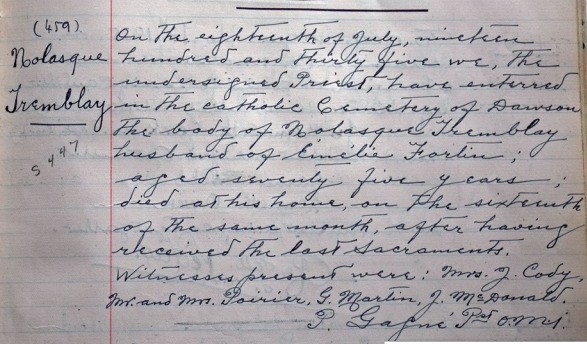 (459)
Nolasque
Tremblay
5447
On the eighteenth of July, nineteen
hundred and thirty five we, the
undersigned Priest, have enterred
in the catholic Cemetery of Dawson
the body of Nolasque Tremblay
husband of Emélie Fortin;
aged seventy five years;
died at his home, on the sixteenth
of the same month, after having
received the last Sacraments.
Witnesses present were: Mrs. J. Cody,
Mr. and Mrs. Poirier, G. Martin, J. McDonald.
P. Gagné Pst o.m.i.